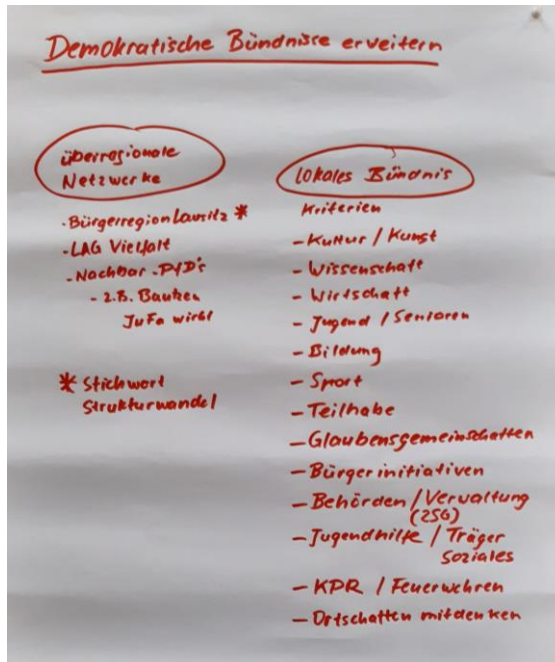 Demokratische Bündnisse erweitern
überregionale
Netzwerke
- Bürgerregion Lausitz *
- LAG Vielfalt
- Nachbar-PfD's
- z.B. Bautzen
JuFa wirkt
* Stichwort
Strukturwandel
Lokales Bündnis
Kriterien
- Kultur / Kunst
- Wissenschaft
- Wirtschaft
- Jugend / Senioren
- Bildung
- Sport
- Teilhabe
- Glaubensgemeinschaften
- Bürgerinitiativen
- Behörden / Verwaltung
(ZSG)
- Jugendhilfe / Träger
Soziales
- KPR / Feuerwehren
- Ortschaften mitdenken